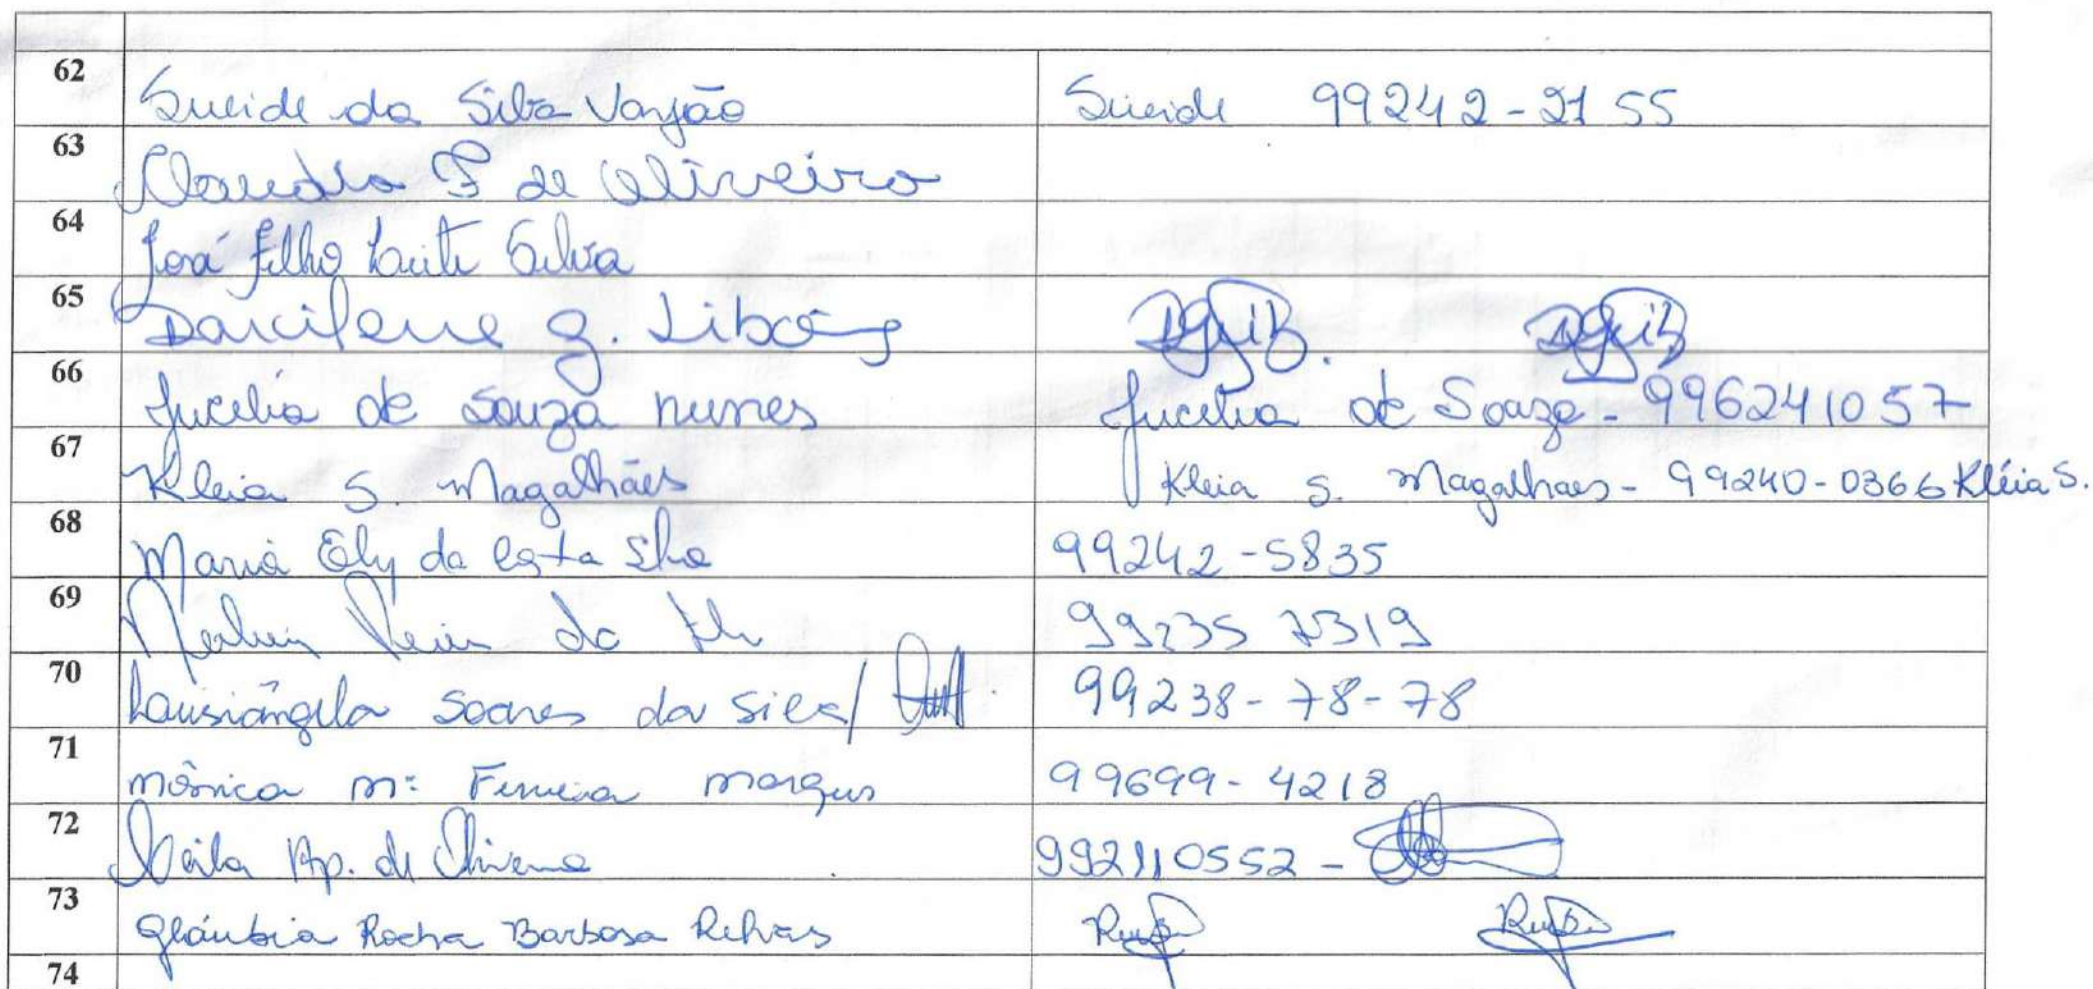 62 Sueide da Silva Varjão Sueide 99242-2155
63 Claudia F de Oliveira
64 José Filho Leite Silva
65 Darcilene G. Libó
66 Jucelia de Souza nunes Jucelia de Souza - 996241057
67 Kleia S Magalhães Kleia S. Magalhaes - 99240-0366 Kléia S.
68 Maria Ely da Costa Slva 99242-5835
69 99235 7319
70 Lausiângela Soares da Silva/ 99238-78-78
71 mônica mª Ferreira marques 99699-4218
72 Ap. de Oliveira 992110552 -
73 Gláubia Rocha Barbosa Relvas
74